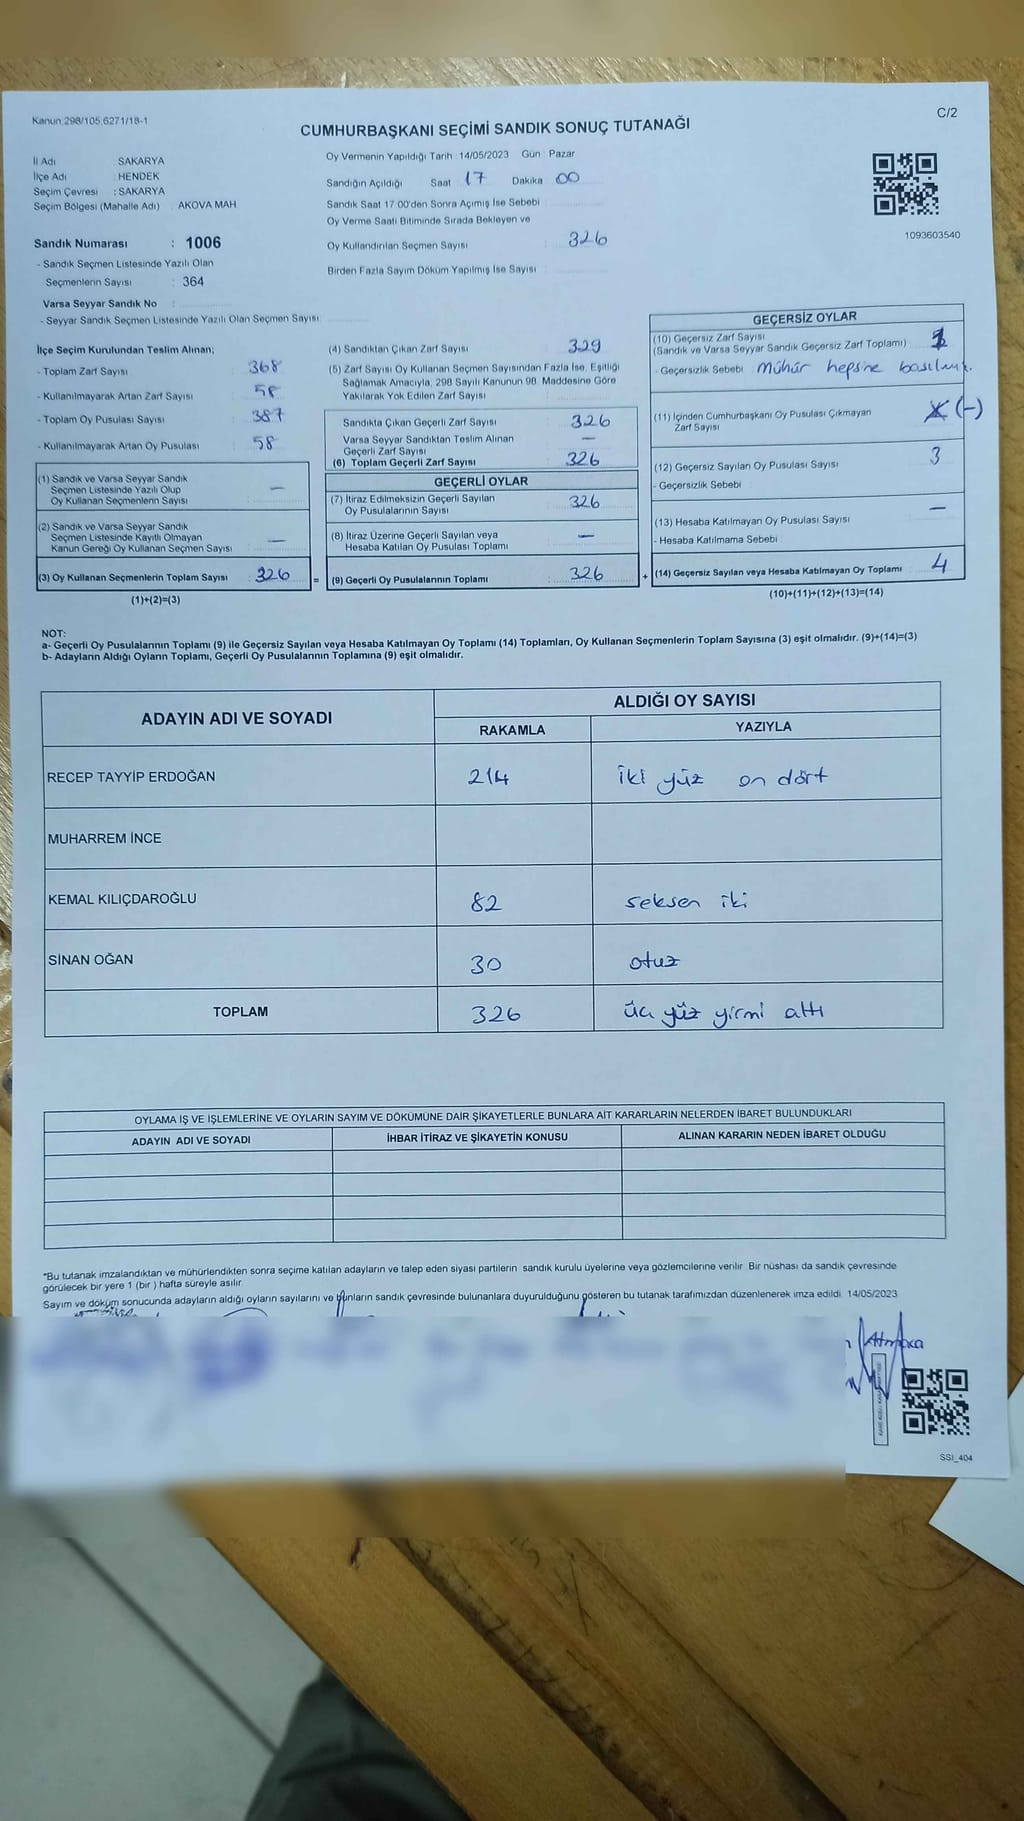 Kanun:298/105,6271/18-1
C/2
CUMHURBAŞKANI SEÇİMİ SANDIK SONUÇ TUTANAĞI
İl Adı SAKARYA
İlçe Adı : HENDEK
Seçim Çevresi : SAKARYA
Seçim Bölgesi (Mahalle Adı) : AKOVA MAH
Sandık Numarası : 1006
- Sandık Seçmen Listesinde Yazılı Olan
Seçmenlerin Sayısı : 364
Varsa Seyyar Sandık No :
- Seyyar Sandık Seçmen Listesinde Yazılı Olan Seçmen Sayısı:
Oy Vermenin Yapıldığı Tarih : 14/05/2023 Gün : Pazar
Sandığın Açıldığı Saat 17 Dakika 00
Sandık Saat 17:00'den Sonra Açımış İse Sebebi :
Oy Verme Saati Bitiminde Sırada Bekleyen ve
Oy Kullandırılan Seçmen Sayısı : 326
Birden Fazla Sayım Döküm Yapılmış İse Sayısı :
1093603540
İlçe Seçim Kurulundan Teslim Alınan;
- Toplam Zarf Sayısı : 368
- Kullanılmayarak Artan Zarf Sayısı : 58
- Toplam Oy Pusulası Sayısı : 387
- Kullanılmayarak Artan Oy Pusulası : 58
(1) Sandık ve Varsa Seyyar Sandık
Seçmen Listesinde Yazılı Olup
Oy Kullanan Seçmenlerin Sayısı : —
(2) Sandık ve Varsa Seyyar Sandık
Seçmen Listesinde Kayıtlı Olmayan
Kanun Gereği Oy Kullanan Seçmen Sayısı : —
(3) Oy Kullanan Seçmenlerin Toplam Sayısı : 326
(1)+(2)=(3)
(4) Sandıktan Çıkan Zarf Sayısı : 329
(5) Zarf Sayısı Oy Kullanan Seçmen Sayısından Fazla İse, Eşitliği
Sağlamak Amacıyla, 298 Sayılı Kanunun 98. Maddesine Göre
Yakılarak Yok Edilen Zarf Sayısı :
Sandıkta Çıkan Geçerli Zarf Sayısı : 326
Varsa Seyyar Sandıktan Teslim Alınan
Geçerli Zarf Sayısı : —
(6) Toplam Geçerli Zarf Sayısı : 326
GEÇERLİ OYLAR
(7) İtiraz Edilmeksizin Geçerli Sayılan
Oy Pusulalarının Sayısı : 326
(8) İtiraz Üzerine Geçerli Sayılan veya
Hesaba Katılan Oy Pusulası Toplamı : —
= (9) Geçerli Oy Pusulalarının Toplamı : 326
GEÇERSİZ OYLAR
(10) Geçersiz Zarf Sayısı
(Sandık ve Varsa Seyyar Sandık Geçersiz Zarf Toplamı) : 1
- Geçersizlik Sebebi : Mühür hepsine
(11) İçinden Cumhurbaşkanı Oy Pusulası Çıkmayan
Zarf Sayısı : (-)
(12) Geçersiz Sayılan Oy Pusulası Sayısı : 3
- Geçersizlik Sebebi :
(13) Hesaba Katılmayan Oy Pusulası Sayısı : —
- Hesaba Katılmama Sebebi :
+ (14) Geçersiz Sayılan veya Hesaba Katılmayan Oy Toplamı : 4
(10)+(11)+(12)+(13)=(14)
NOT:
a- Geçerli Oy Pusulalarının Toplamı (9) ile Geçersiz Sayılan veya Hesaba Katılmayan Oy Toplamı (14) Toplamları, Oy Kullanan Seçmenlerin Toplam Sayısına (3) eşit olmalıdır. (9)+(14)=(3)
b- Adayların Aldığı Oyların Toplamı, Geçerli Oy Pusulalarının Toplamına (9) eşit olmalıdır.
ADAYIN ADI VE SOYADI ALDIĞI OY SAYISI
RAKAMLA YAZIYLA
RECEP TAYYİP ERDOĞAN 214 iki yüz on dört
MUHARREM İNCE
KEMAL KILIÇDAROĞLU 82 seksen iki
SİNAN OĞAN 30 otuz
TOPLAM 326 üç yüz yirmi altı
OYLAMA İŞ VE İŞLEMLERİNE VE OYLARIN SAYIM VE DÖKÜMÜNE DAİR ŞİKAYETLERLE BUNLARA AİT KARARLARIN NELERDEN İBARET BULUNDUKLARI
ADAYIN ADI VE SOYADI İHBAR İTİRAZ VE ŞİKAYETİN KONUSU ALINAN KARARIN NEDEN İBARET OLDUĞU
*Bu tutanak imzalandıktan ve mühürlendikten sonra seçime katılan adayların ve talep eden siyasi partilerin sandık kurulu üyelerine veya gözlemcilerine verilir. Bir nüshası da sandık çevresinde
görülecek bir yere 1 (bir ) hafta süreyle asılır.
Sayım ve döküm sonucunda adayların aldığı oyların sayılarını ve bunların sandık çevresinde bulunanlara duyurulduğunu gösteren bu tutanak tarafımızdan düzenlenerek imza edildi. 14/05/2023
SSI_404